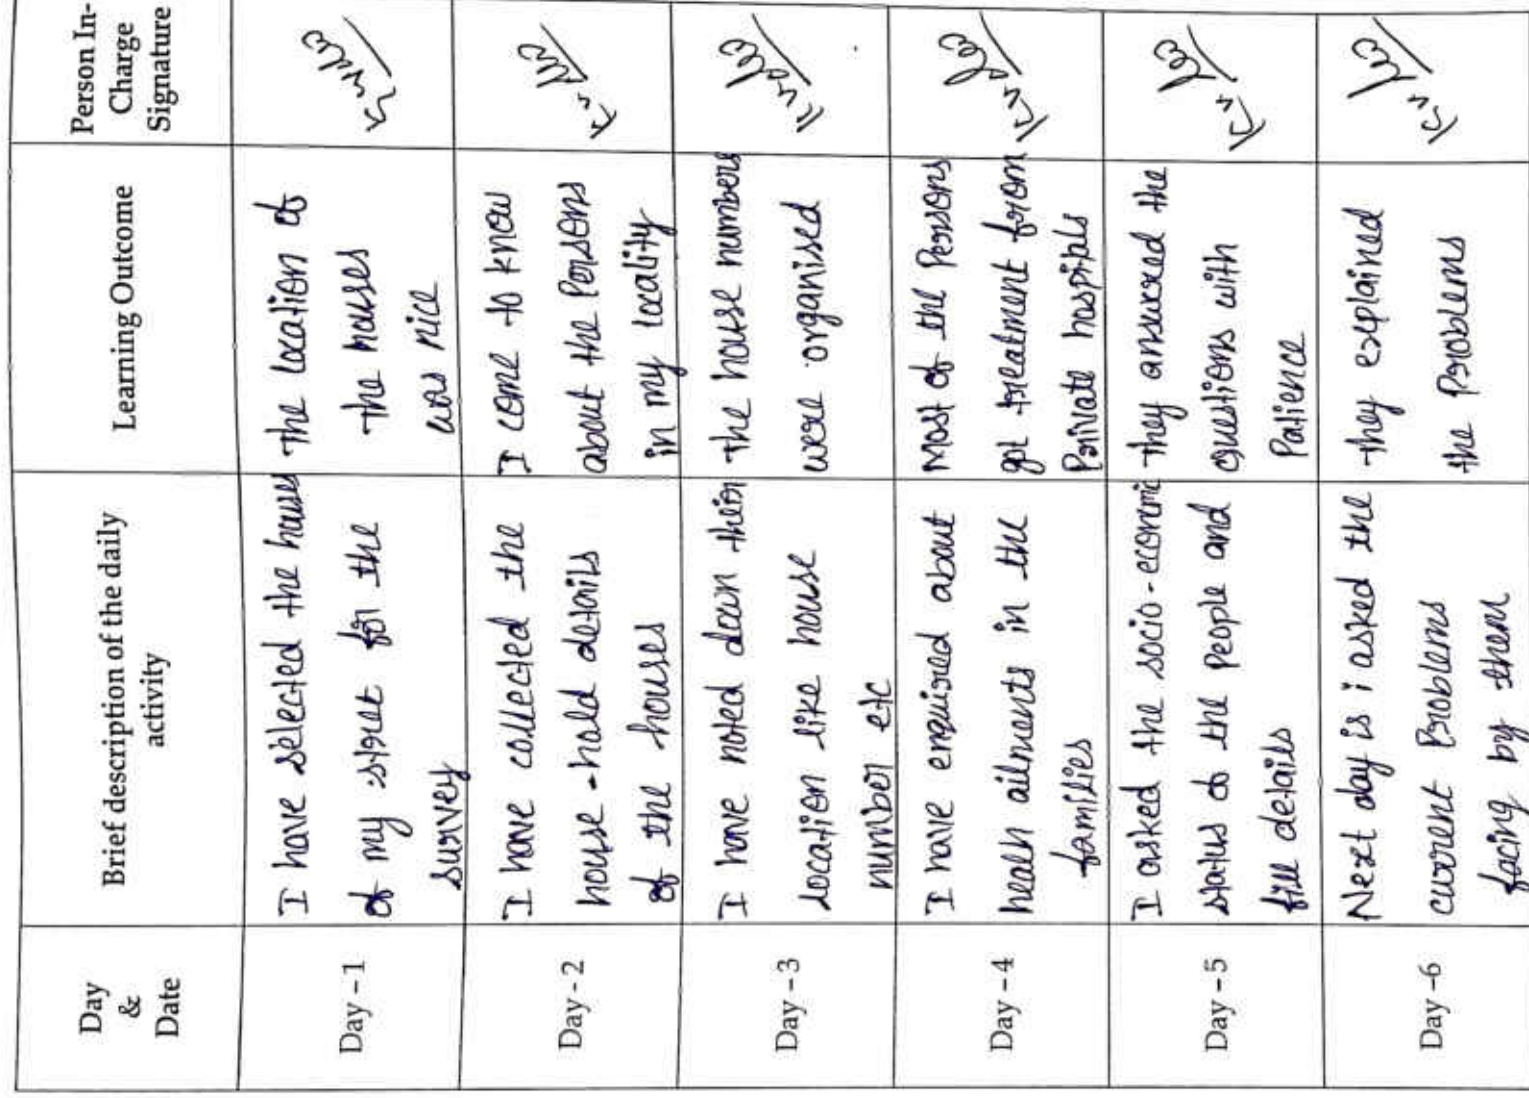 Day
&
Date
Brief description of the daily
activity
Learning Outcome
Person In-
Charge
Signature
Day - 1
I have selected the house
of my street for the
survey
the location of
the houses
was nice
Day - 2
I have collected the
house-hold details
of the houses
I come to know
about the Persons
in my locality
Day - 3
I have noted down their
location like house
number etc
the house numbers
were organised
Day - 4
I have enquired about
health ailments in the
families
Most of the Persons
got treatment from
Private hospitals
Day - 5
I asked the socio-economic
status of the People and
fill details
they answered the
questions with
Patience
Day -6
Next day is i asked the
current Problems
facing by them
they explained
the Problems